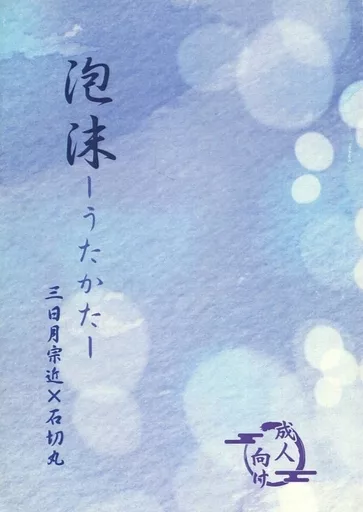 泡沫
ーうたかたー
三日月宗近×石切丸
成人
向け